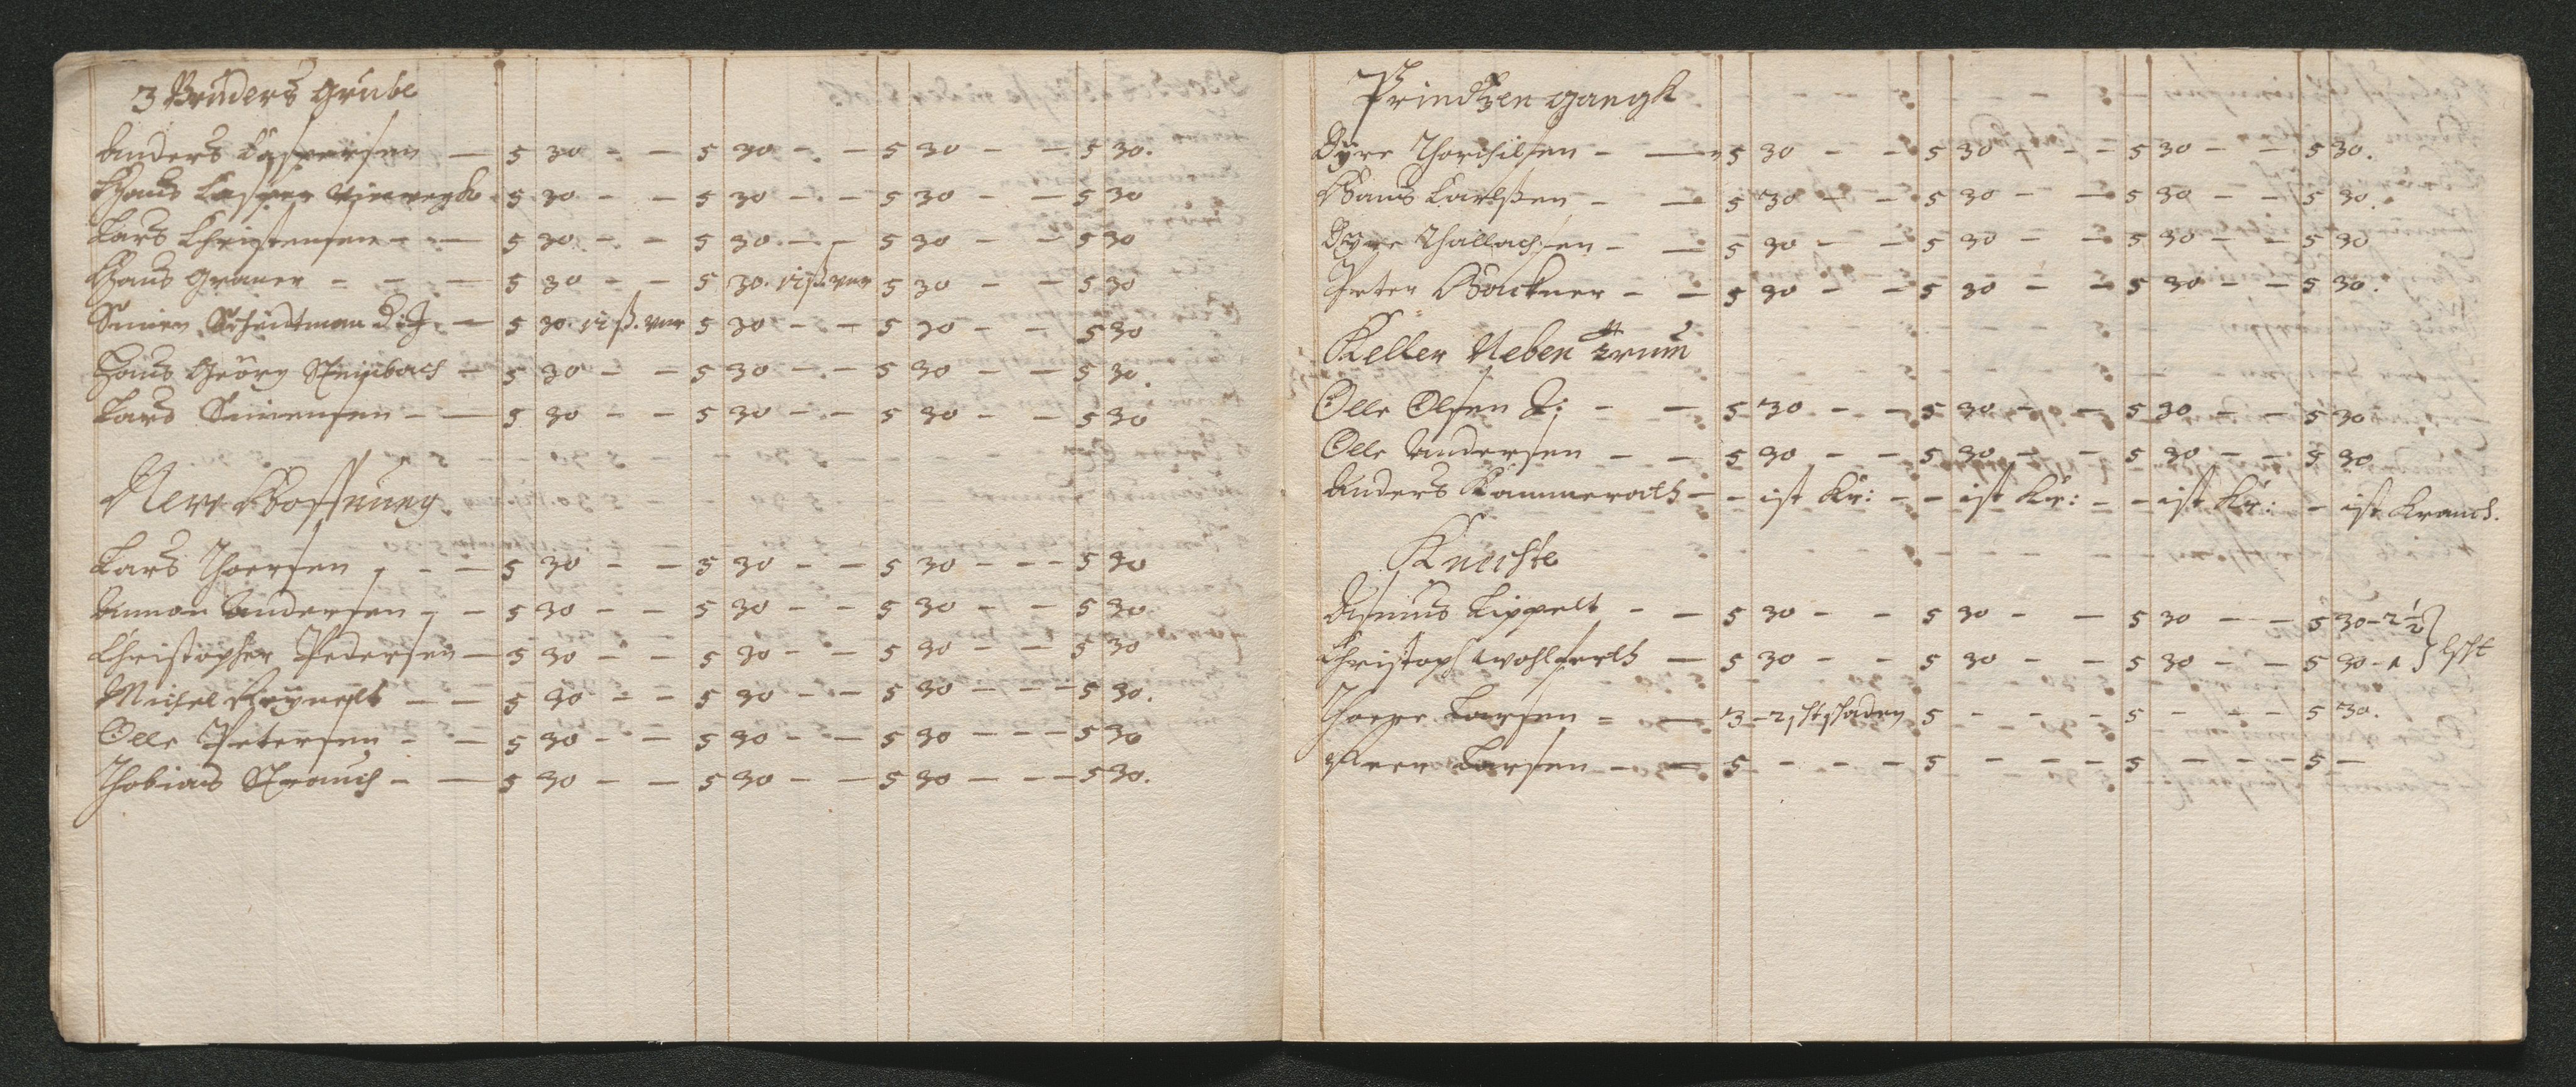 3 Brüders Grube
Anders Caspersen — 5 30 - - 5 30 - - 5 30 - - 5 30.
Hans Casper Vierwegk 5 30 - - 5 30 - - 5 30 - - 5 30
Lars Christensen - - 5 30 - - 5 30 - - 5 30 - - 5 30
Hans Graner - - - 5 30 - - 5 30. 12 ß. vnr 5 30 - - 5 30
Simen Schentman d: J. - 5 30 12 ß. vnr 5 30 - - 5 30 - - 5 30
Hans Geörg Steinbach - 5 30 - - 5 30 - - 5 30 - - 5 30.
Lars Simensen - - 5 30 - - 5 30 - - 5 30 - - 5 30
New Hoffnung
Lars Thorsen - - 5 30 - - 5 30 - - 5 30 - - - 5 30
Ammon Andersen - - 5 30 - - 5 30 - - 5 30 - - 5 30.
Christopher Pedersen - 5 30 - - 5 30 - - 5 30 - - 5 30
Michel Reynelt - - 5 30 - - 5 30 - - 5 30 - - - 5 30.
Olle Petersen - - 5 30 - - 5 30 - - 5 30 - - - 5 30
Thobias Strauch - - 5 30 - - 5 30 - - 5 30 - - - 5 30.
Prindtzen gangk
Gyre Thorchilsen - - 5 30 - - 5 30 - - 5 30 - - 5 30.
Hans Carlßen - - 5 30 - - 5 30 - - 5 30 - - 5 30.
Gyre Thallachsen - - 5 30 - - 5 30 - - 5 30 - - 5 30
Peter Hackner - - 5 30 - - 5 30 - - 5 30 - - 5 30.
Keller Neben trum
Olle Olsen J: - - 5 30 - - 5 30 - - 5 30 - - 5 30
Olle Andersen - - 5 30 - - 5 30 - - 5 30 - - 5 30
Anders Kammerath - - ist Kr: - - ist Kr: - - ist Kr: - ist Kranck.
Knechte
Asmus Lippelt - - 5 30 - - 5 30 - - 5 30 - - 5 30 - 2 1/2
Christoph Wohlferth - 5 30 - - 5 30 - - 5 30 - - 5 30 - 1 } scht
Thorre Larsen - - 3 - 2 scht schaden 5 - - - 5 - - - 5 30.
Larsen - - 5 - - - 5 - - - 5 - - - 5 -